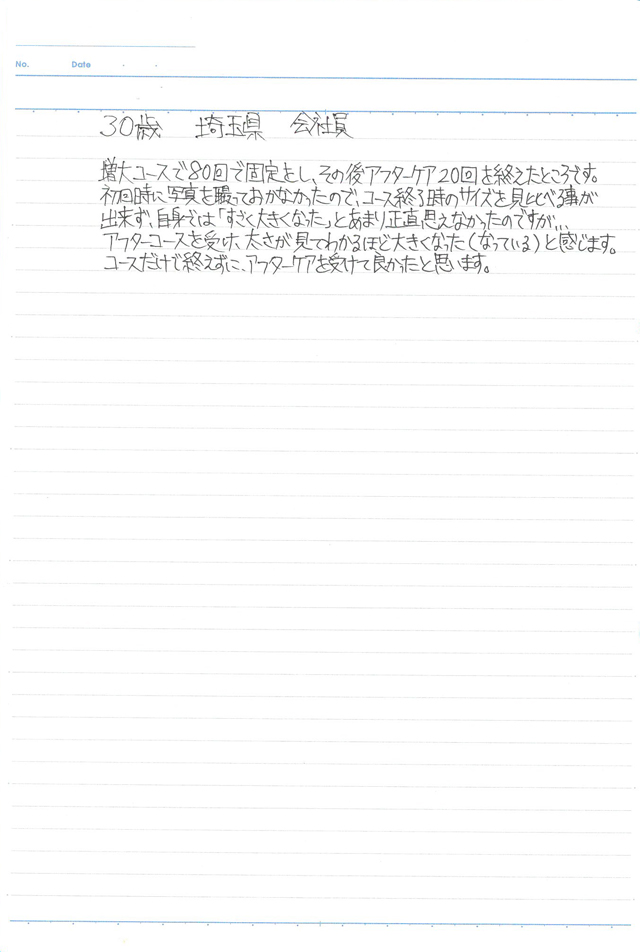 No.　Date
30歳　埼玉県　会社員
増大コースで80回で固定をし、その後アフターケア20回を終えたところです。
初回時に写真を撮っておかなかったので、コース終了時のサイズを見比べる事が
出来ず、自身では「すごく大きくなった」とあまり正直思えなかったのですが、、、
アフターコースを受け、太さが見てわかるほど大きくなった（なっている）と感じます。
コースだけで終えずに、アフターケアを受けて良かったと思います。